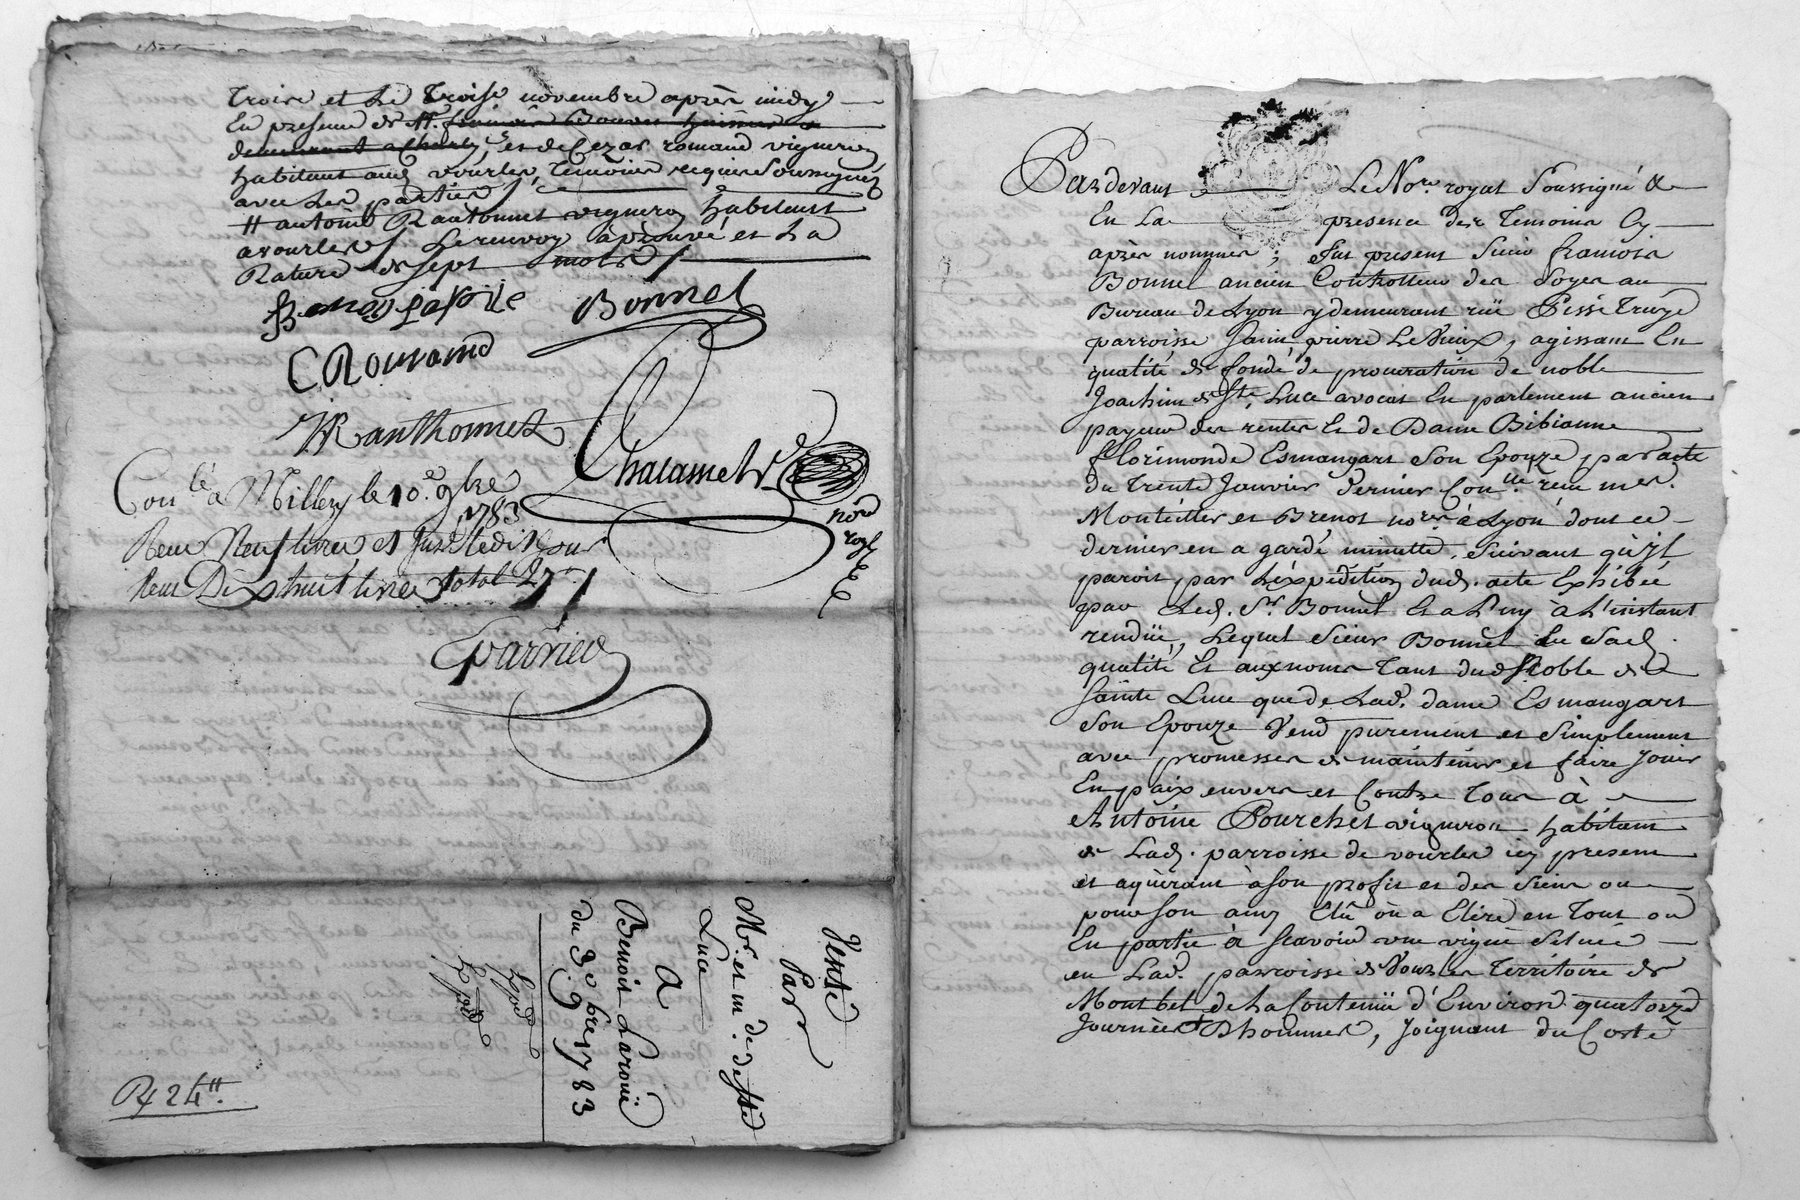 troise et le troise novembre après midy
En presence de Mr.
demeurant a Charly, et de Cezar romand vigneron
habitant aud. vourles, temoins requis Soussignés
avec les parties
# antoine Rantonnet vigneron habitant
a vourles / Le renvoy aprouvé et La
Rature de sept mots /
Benoy larove Bonnet
C Roumand
Ranthonnet
Chalamel
nore
royl
Con.lé a Milley le 10.e 9bre
1783
Reçu Neuf livres et
Reçu Dixhuit livres total 27
parried
Vente
Par
Mr. et m.de de Ste
Luce
A
Benoit Laroüe
du 3e 9bre 1783
Exped
R 24tt.
Pardevant Le Nore. royal Soussigné &
En La presence des temoins Cy
après nommés ; fut present Sieur francois
Bonnet ancien Controlleur des Soyes au
Bureau de Lyon y demeurant rüe Pisse Truye
parroisse Saint pierre Le Vieux, agissant En
qualité de fondé de procuration de noble
Joachim de Ste. Luce avocat En parlement ancien
payeur des rentes Et de Dame Bibianne
florimonde Esmangart Son Epouze par acte
du Trente Janvier dernier Con.llé reçu mes.
Monteillier et Brenot nores. à Lyon dont ce
dernier en a gardé minutte, Suivant qu'il
paroit par L'éxpédition dud. acte Exhibée
par Led. Sr. Bonnet Et a Luy à L'instant
rendüe, Lequel Sieur Bonnet En Sad.
qualité Et aux noms tant dud. Noble de
Sainte Luce que de Lad. dame Esmangart
Son Epouze Vend purement et Simplement
avec promesses de maintenir et faire Jouir
En paix envers et Contre tous à
Antoine Pourchet vigneron habitant
de Lad. parroisse de vourles icy present
et aquèrant à son profit et des Siens ou
pour Son amy Elû ou a Elire en Tout ou
En partie à Scavoir une vigne Située
en Lad. parroisse de Vourles Territoire de
Montbel de La Contenüe d'Environ quatorze
Journées D'hommes, Joignant du Costé